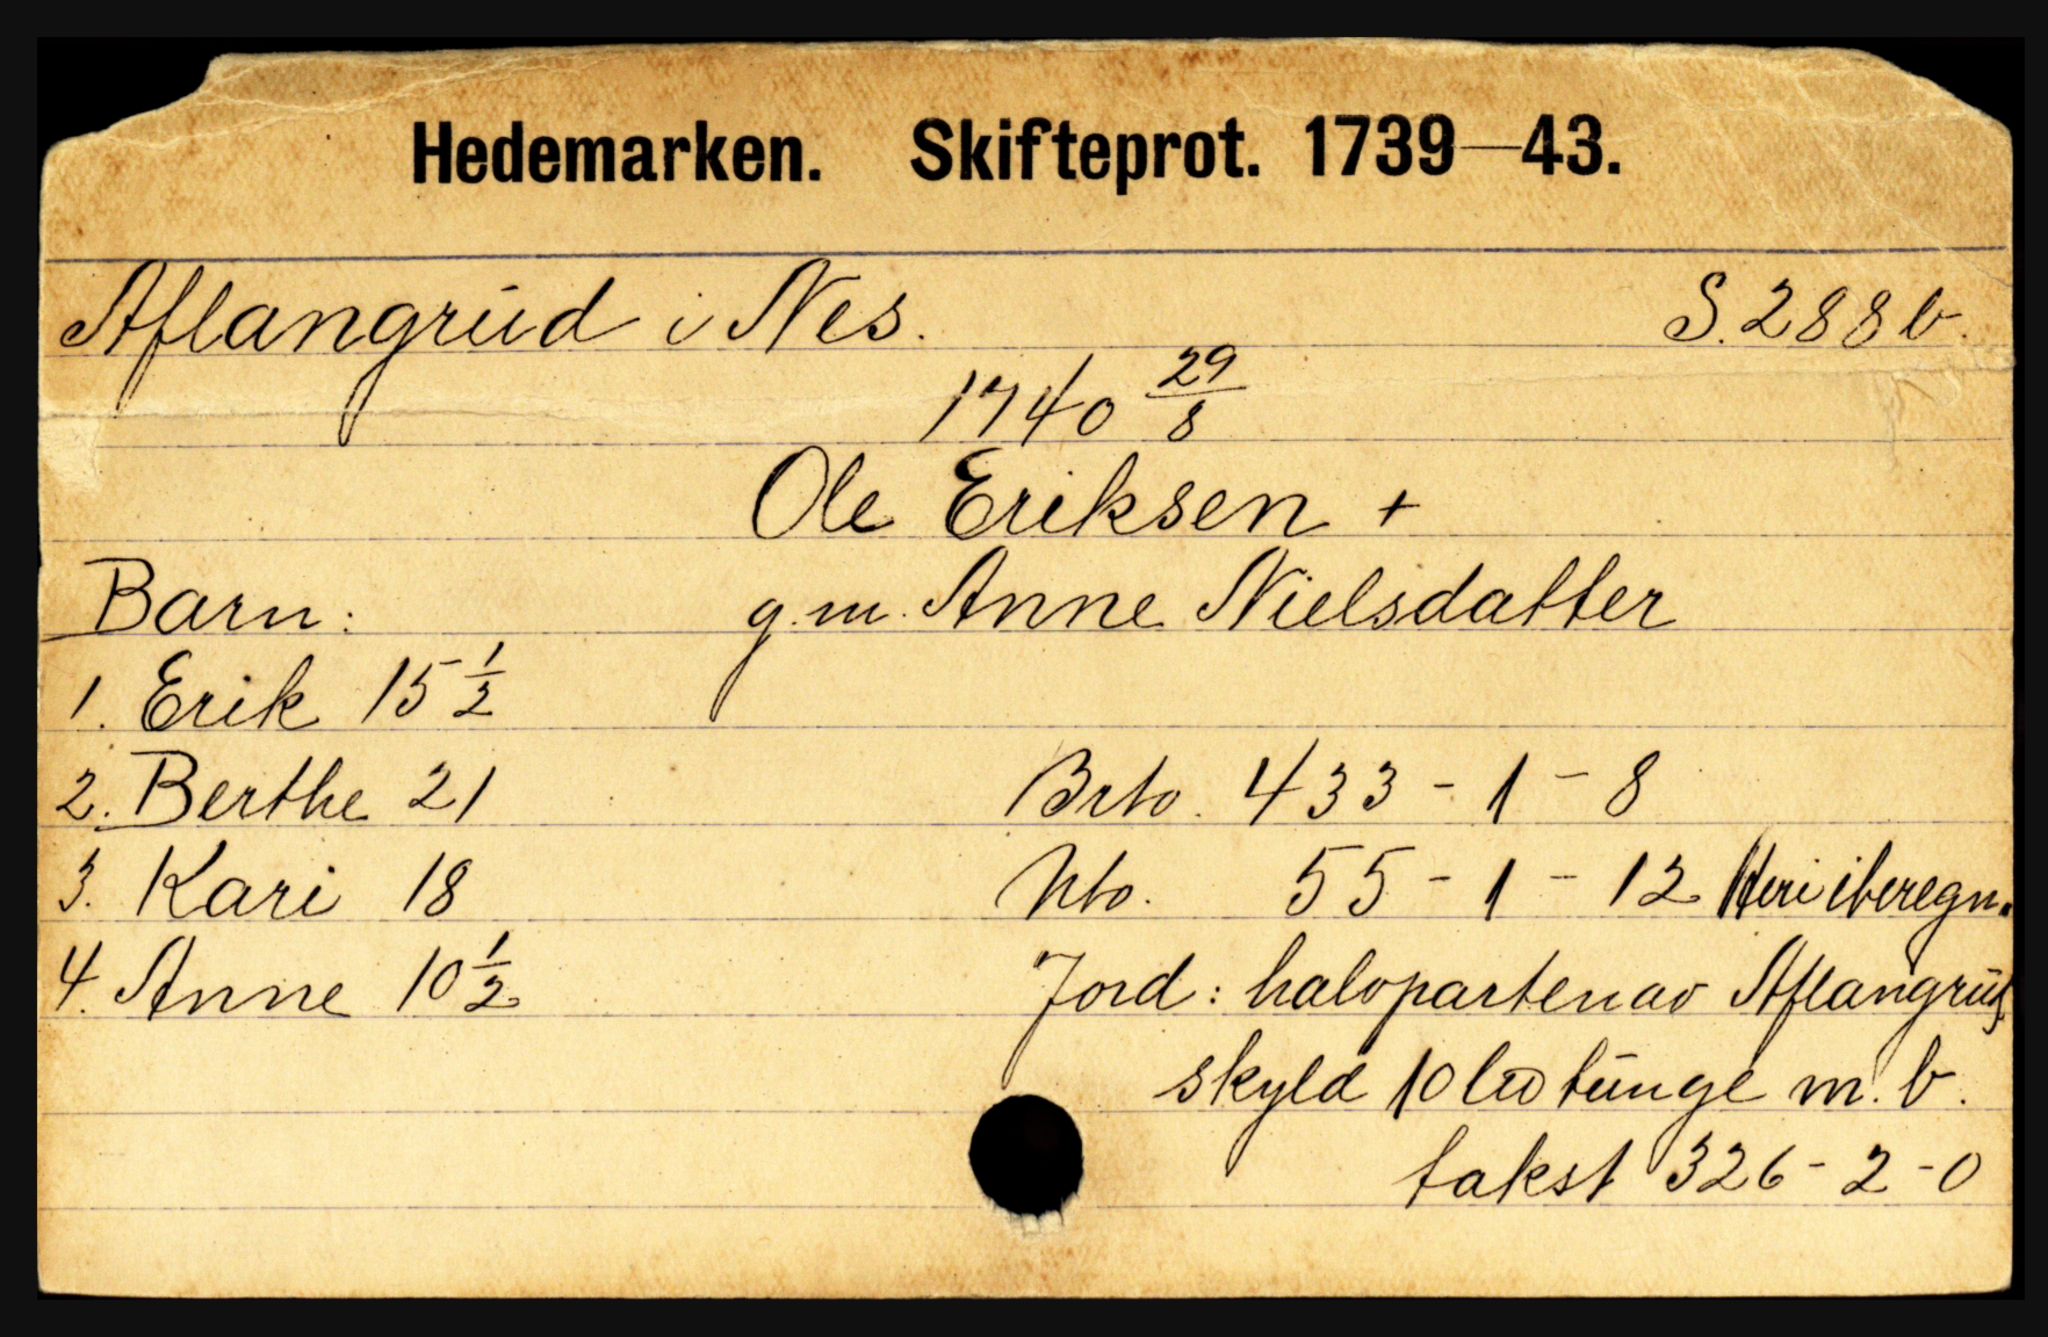 Hedemarken. Skifteprot. 1739—43.
Aflangrud i Nes. S. 288 b.
1740 29/8
Ole Eriksen +
Barn: g.m. Anne Nielsdatter
1. Erik 15 1/2
2. Berthe 21 Brto. 433 - 1 - 8
3. Kari 18 Nto. 55 - 1 - 12 Heri iberegn.
4. Anne 10 1/2 Jord: halvparten av Aflangrud
skyld 10 tunge m. b.
takst 326 - 2 - 0